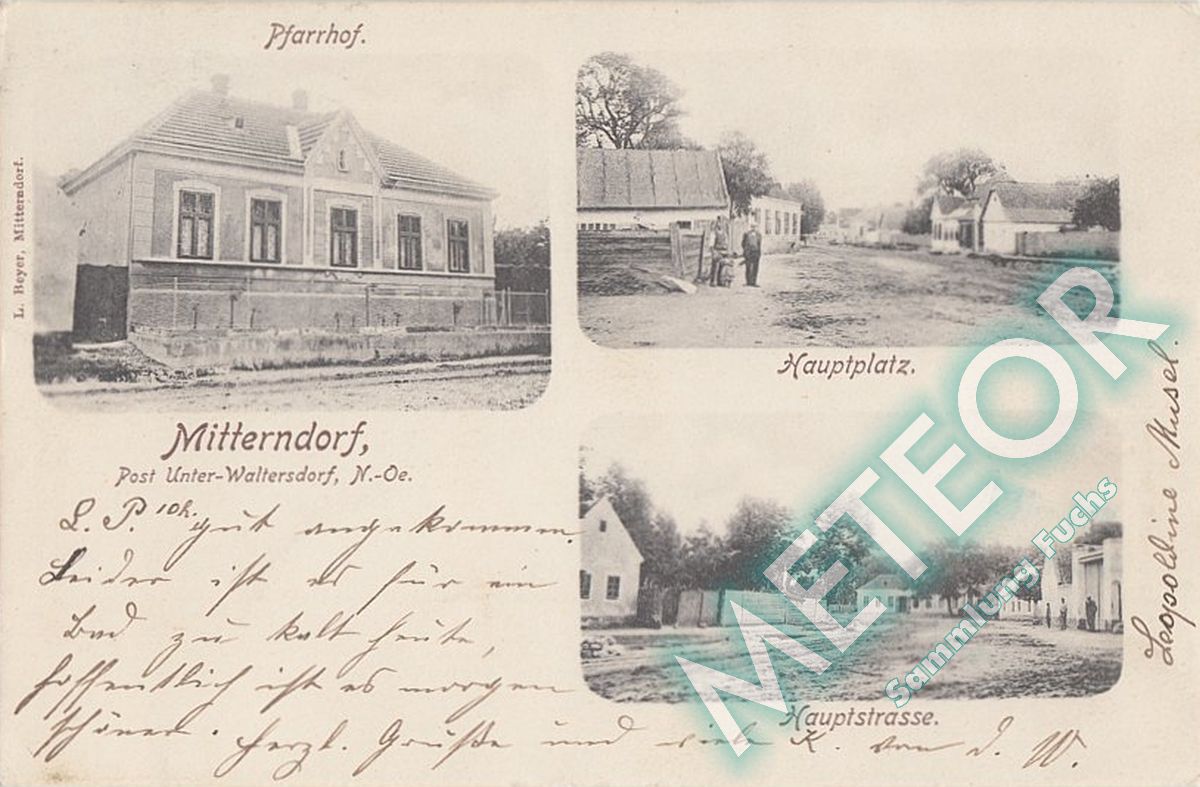 Pfarrhof.
L. Beyer, Mitterndorf.
Hauptplatz.
Mitterndorf,
Post Unter-Waltersdorf, N.-Oe.
L. P. 10h. gut angekommen.
Leider ist es für ein
Bad zu kalt heute,
hoffentlich ist es morgen
schöner. Herzl. Grüße und viele K. von d. W.
Hauptstrasse.
Leopoldine Musel.
METEOR
Sammlung Fuchs